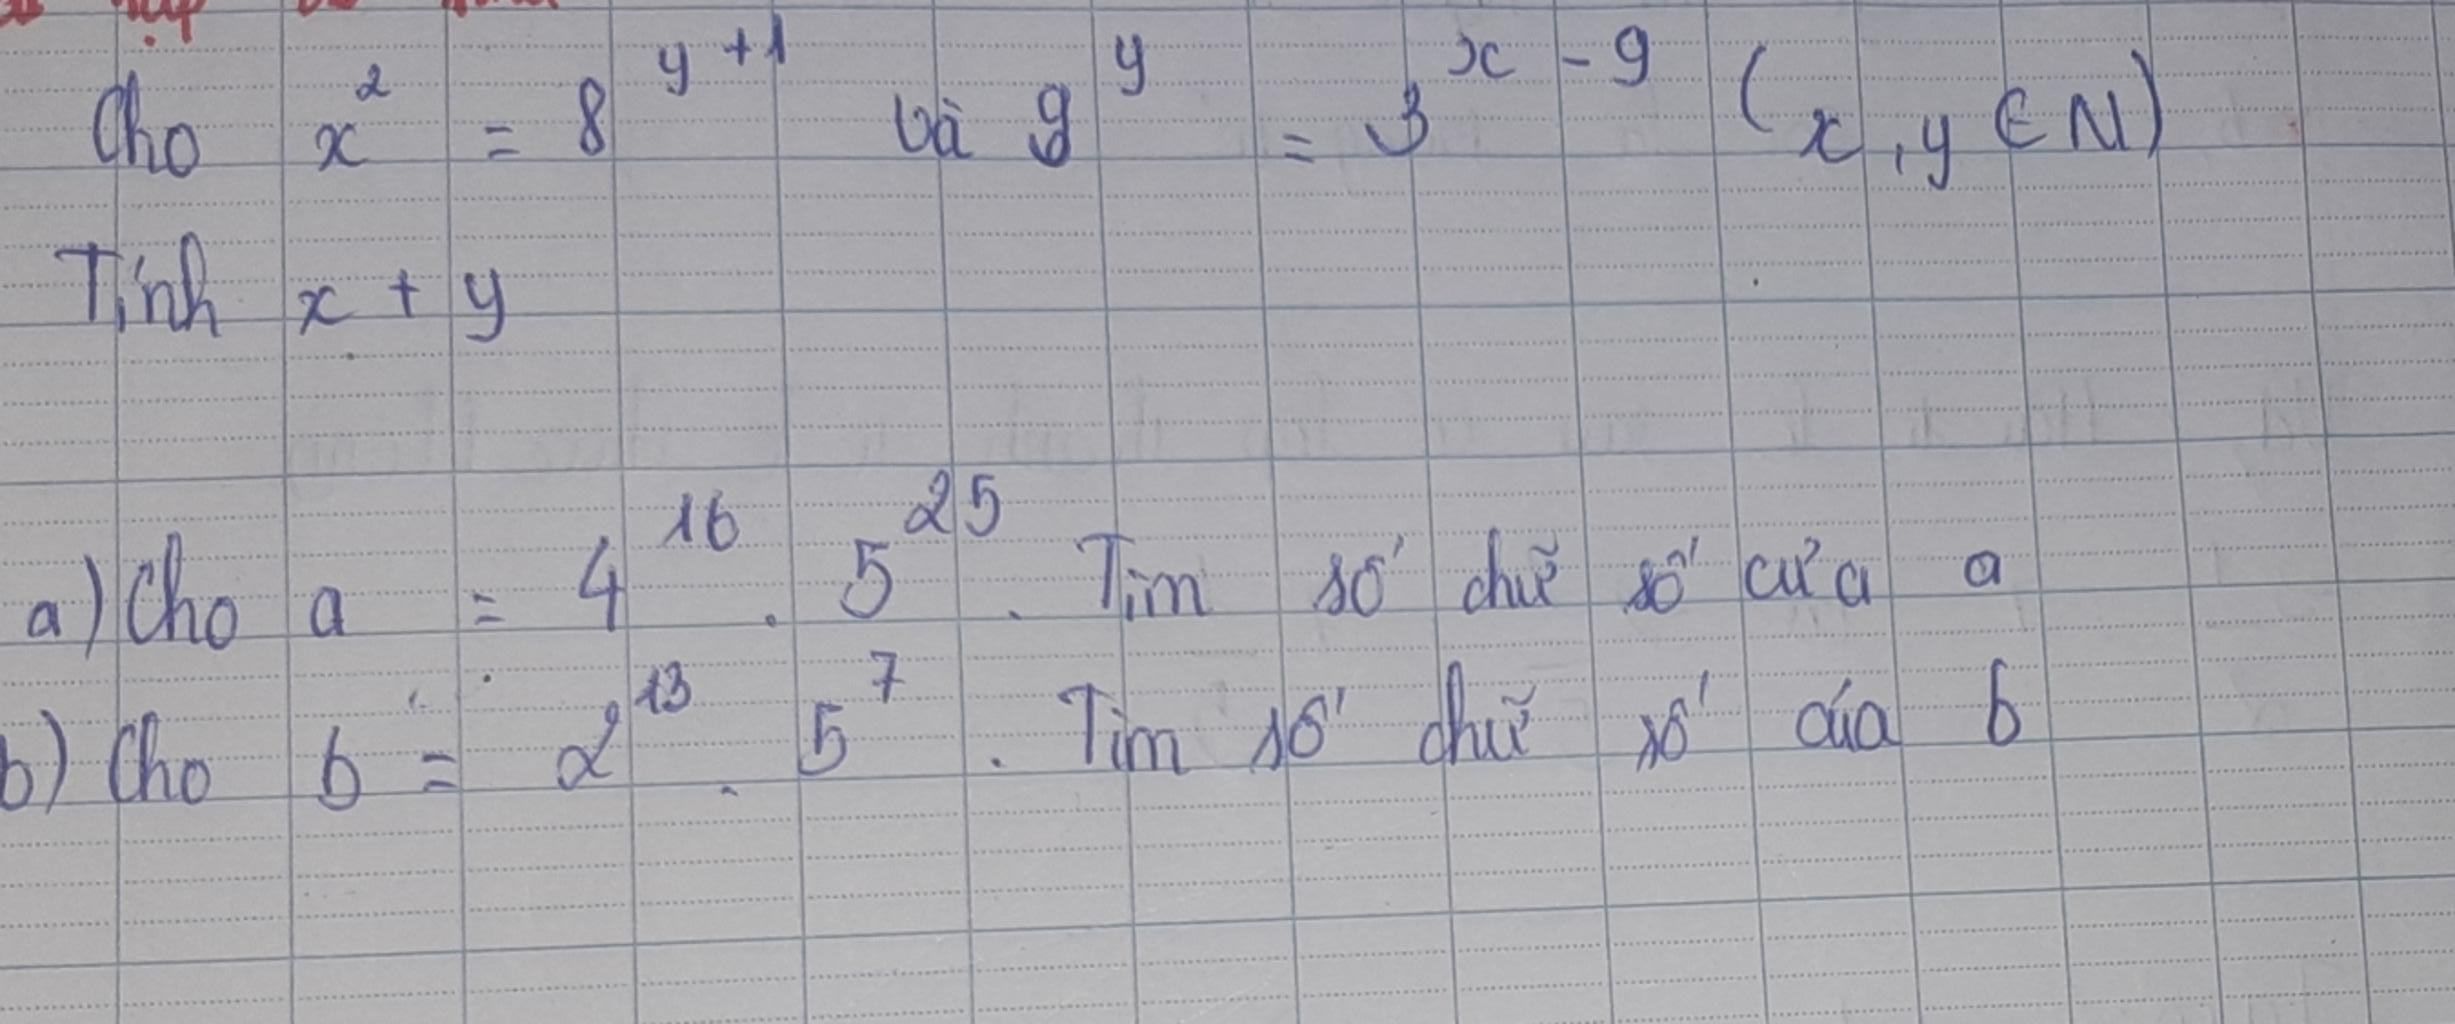 Cho x² = 8^(y+1) và 9^y = 3^(x-9) (x, y ∈ N)
Tính x + y
a) Cho a = 4^16 . 5^25 . Tìm số chữ số của a
b) Cho b = 2^13 . 5^7 . Tìm số chữ số của b